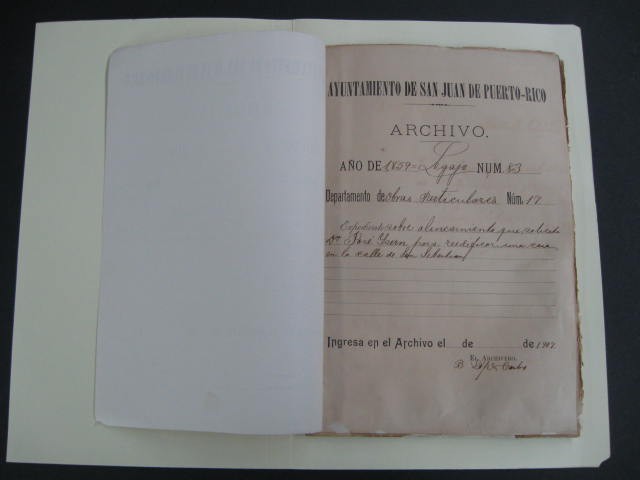 AYUNTAMIENTO DE SAN JUAN DE PUERTO-RICO
ARCHIVO.
AÑO DE 1859 - Legajo NUM. 83
Departamento de Obras Particulares Núm. 17
Expediente sobre alineamiento que solicita
Dn. José Ysern para reedificar una casa
en la calle de San Sebastian
Ingresa en el Archivo el de de 1902
EL ARCHIVERO.
B López